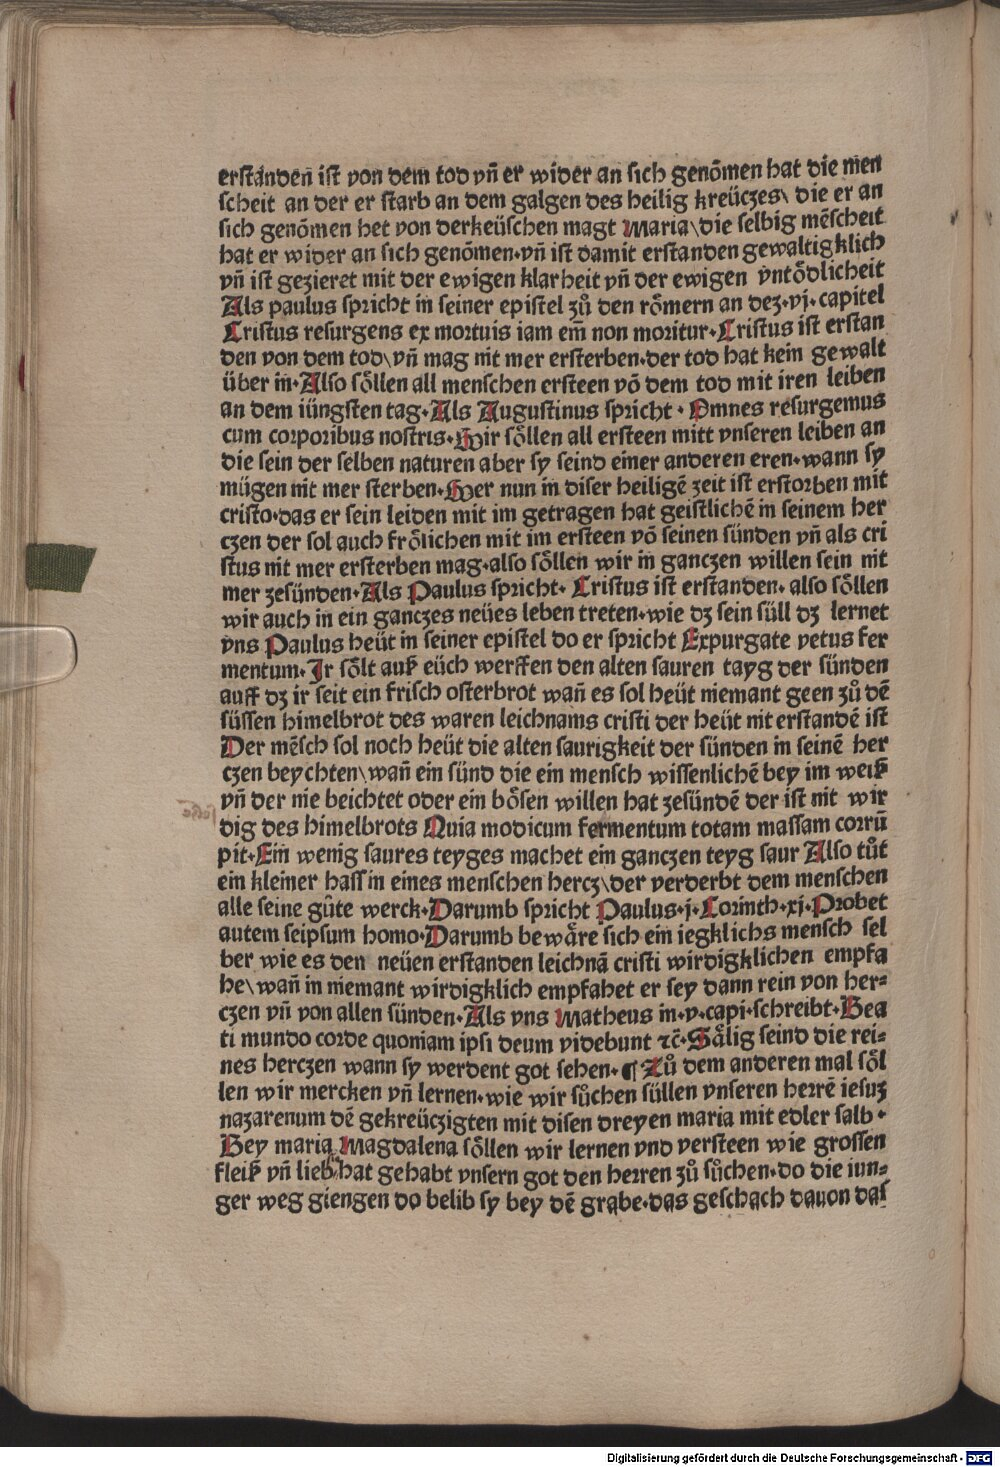 erstanden ist von dem tod vñ er wider an sich genõmen hat die men
scheit an der er starb an dem galgen des heilig kreüczes\ die er an
sich genõmen het von derkeüschen magt Maria\die selbig mẽscheit
hat er wider an sich genõmen·vñ ist damit erstanden gewaltigklich
vñ ist gezieret mit der ewigen klarheit vñ der ewigen vntödlicheit
Als paulus spricht in seiner epistel zů den römern an dez·vj·capitel
Cristus resurgens ex mortuis iam em̃ non moritur·Cristus ist erstan
den von dem tod\vñ mag nit mer ersterben·der tod hat kein gewalt
über in·Also söllen all menschen ersteen võ dem tod mit iren leiben
an dem iüngsten tag·Als Augustinus spricht·Omnes resurgemus
cum corporibus nostris·Wir söllen all ersteen mitt vnseren leiben an
die sein der selben naturen aber sy seind einer anderen eren·wann sy
mügen nit mer sterben·Wer nun in diser heiligẽ zeit ist erstorben mit
cristo·das er sein leiden mit im getragen hat geistlichẽ in seinem her
czen der sol auch frölichen mit im ersteen võ seinen sünden vñ als cri
stus nit mer ersterben mag·also söllen wir in ganczen willen sein nit
mer zesünden·Als Paulus spricht·Cristus ist erstanden·also söllen
wir auch in ein ganczes neües leben treten·wie dz sein süll dz lernet
vns Paulus heüt in seiner epistel do er spricht Expurgate vetus fer
mentum·Ir sölt auß eüch werffen den alten sauren tayg der sünden
auff dz ir seit ein frisch osterbrot wañ es sol heüt niemant geen zů dẽ
süssen himelbrot des waren leichnams cristi der heüt nit erstandẽ ist
Der mẽsch sol noch heüt die alten saurigkeit der sünden in seinẽ her
czen beychten\wañ ein sünd die ein mensch wissenlichẽ bey im weiß
vñ der nie beichtet oder ein bösen willen hat zesündẽ der ist nit wir
dig des himelbrots Quia modicum fermentum totam massam corrũ
pit·Ein wenig saures teyges machet ein ganczen teyg saur Also tůt
ein kleiner hass in eines menschen hercz\der verderbt dem menschen
alle seine gůte werck·Darumb spricht Paulus·j·Corinth·xj·Probet
autem seipsum homo·Darumb bewäre sich ein iegklichs mensch sel
ber wie es den neüen erstanden leichnã cristi wirdigklichen empfa
he\wañ in niemant wirdigklich empfahet er sey dann rein von her⸗
czen vñ von allen sünden·Als vns Matheus in·v·capi·schreibt·Bea
ti mundo corde quoniam ipsi deum videbunt ⁊c̃·Sälig seind die rei⸗
nes herczen wann sy werdent got sehen·¶ Zů dem anderen mal söl
len wir mercken vñ lernen·wie wir sůchen süllen vnseren herrẽ iesuz
nazarenum dẽ gekreüczigten mit disen dreyen maria mit edler salb·
Bey maria Magdalena söllen wir lernen vnd versteen wie grossen
fleiß vñ lieb hat gehabt vnsern got den herren zů sůchen·do die iun⸗
ger weg giengen do belib sy bey dẽ grabe·das geschach dauon das
Digitalisierung gefördert durch die Deutsche Forschungsgemeinschaft - DFG